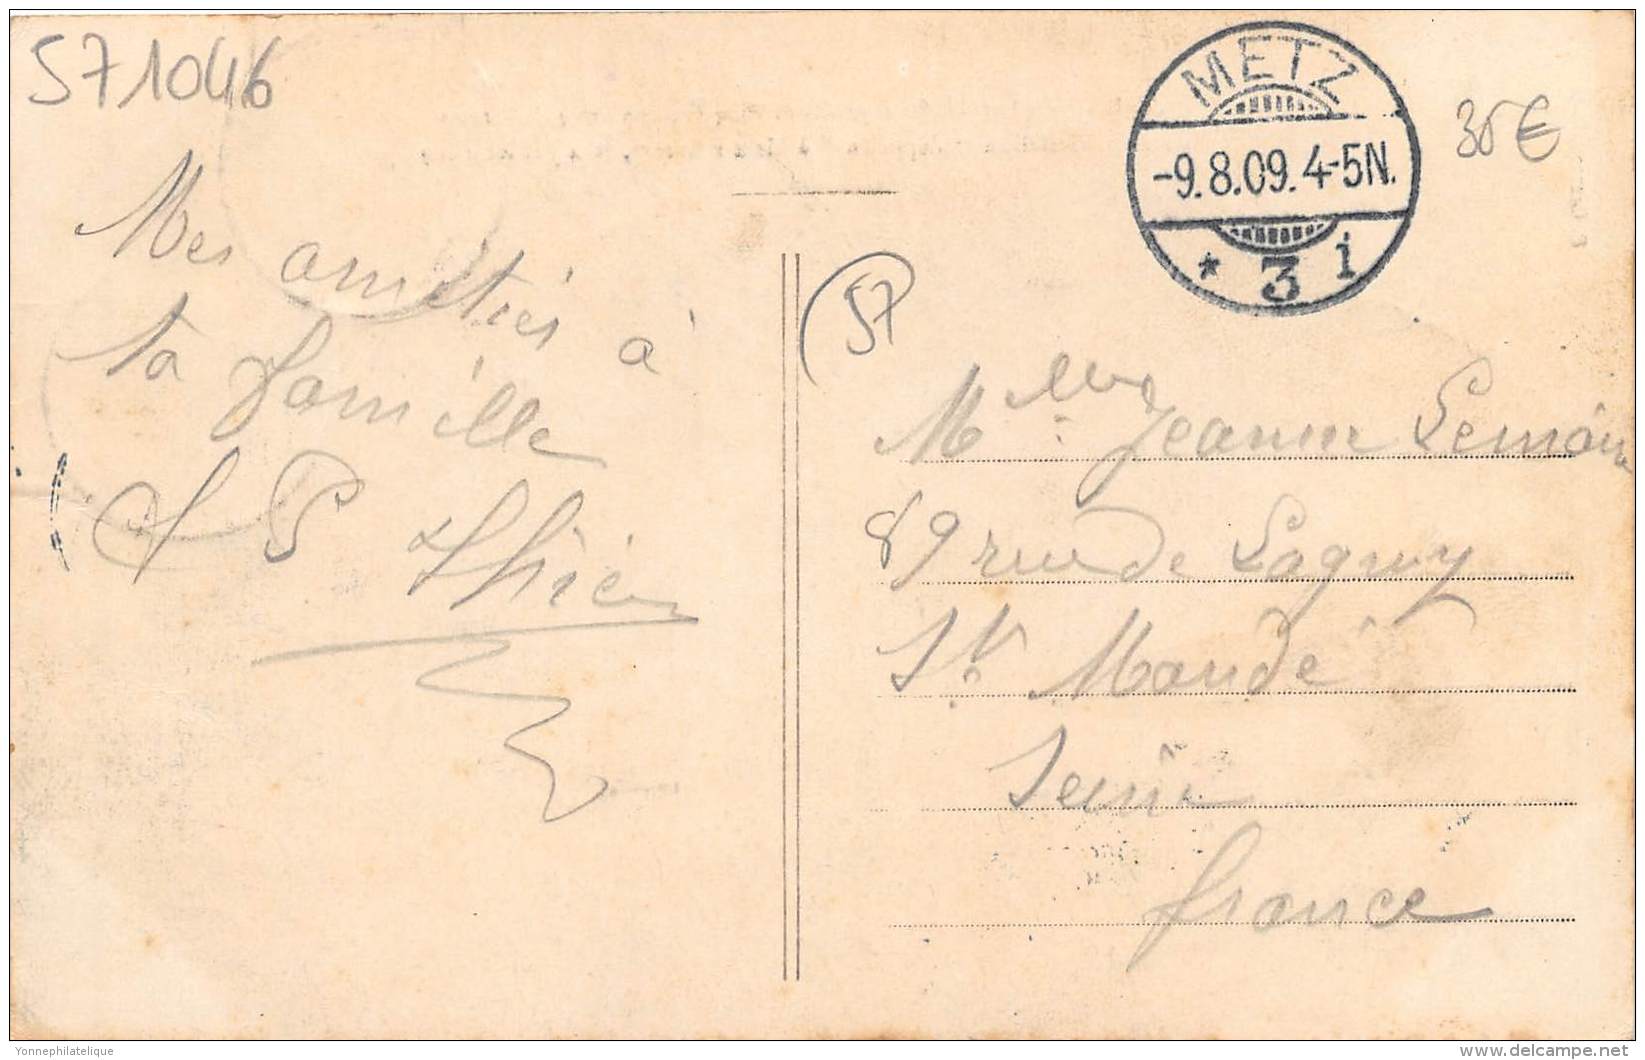 571046
METZ
-9.8.09.4-5N.
* 3 i
35€
57
Mes amitiés à
ta famille
Melle Jeanne Lemoine
89 rue de Lagny
St Mandé
Seine
france
Yonnephilatelique
delcampe.net